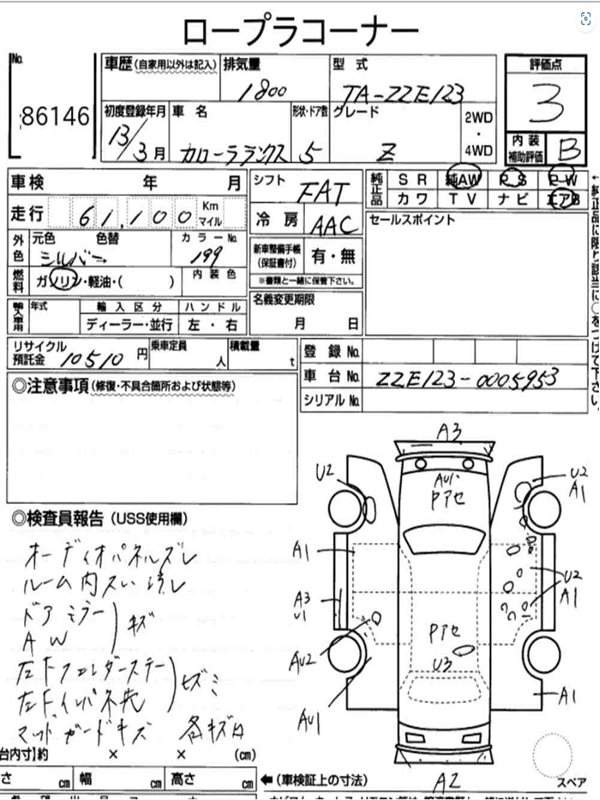 ロープラコーナー
No.
86146
車歴(自家用以外は記入)
排気量
1800
型式
TA-ZZE123
評価点
3
初度登録年月
13/3月
車名
カローラランクス
形状・ドア数
5
グレード
Z
2WD
・
4WD
内装
補助評価
B
車検 年 月
シフト
FAT
純正品
SR 純AW P.S P.W
カワ TV ナビ エアB
走行 61,100 Km
マイル
冷房
AAC
セールスポイント
外色
元色 色替
シルバー
カラーNo.
199
新車整備手帳
(保証書付)
有・無
※書類と一緒に保管下さい。
燃料
ガソリン・軽油・( )
内装色
名義変更期限
月 日
輸入車用
年式
輸入区分
ハンドル
ディーラー・並行
左・右
リサイクル
預託金
10510円
乗車定員
人
積載量
t
登録No.
車台No.
ZZE123-0005953
シリアルNo.
←純正品に限り該当に○をつけて下さい。
◎注意事項(修復・不具合箇所および状態等)
◎検査員報告(USS使用欄)
オーディオパネルズレ
ルーム内スレ汚レ
ドアミラー
AW
キズ
左Fフェンダーステー
左Fインパネ先
マッドガードキズ 各キズ有
A3
U2
AU1
Pアセ
U2
A1
A1
A3
U1
U2
A1
AU2
Pアセ
U3
AU1
A1
A2
スペア
台内寸】約 × × (cm)
さ cm 幅 cm 高さ cm
←(車検証上の寸法)